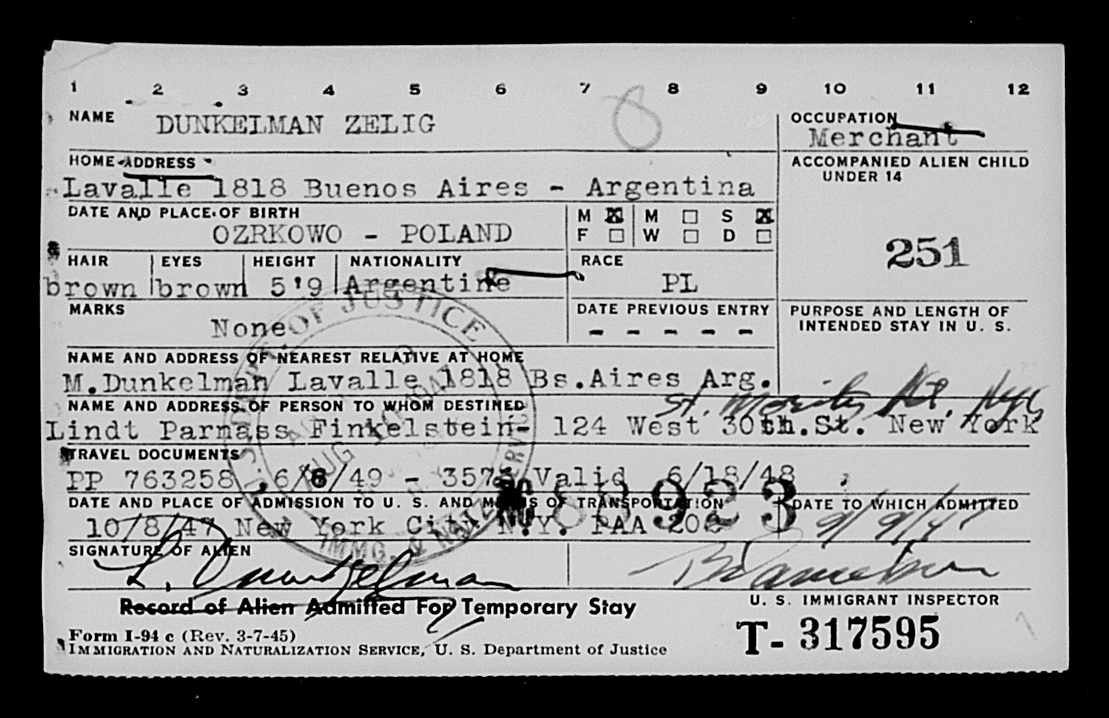 1 2 3 4 5 6 7 8 9 10 11 12
8
NAME DUNKELMAN ZELIG
OCCUPATION Merchant
HOME ADDRESS
Lavalle 1818 Buenos Aires - Argentina
ACCOMPANIED ALIEN CHILD
UNDER 14
DATE AND PLACE OF BIRTH
OZRKOWO - POLAND
M ☒ F ☐ M ☐ W ☐ S ☒ D ☐
251
HAIR brown
EYES brown
HEIGHT 5'9
NATIONALITY Argentine
RACE PL
MARKS None
DATE PREVIOUS ENTRY
- - - - -
PURPOSE AND LENGTH OF
INTENDED STAY IN U. S.
NAME AND ADDRESS OF NEAREST RELATIVE AT HOME
M.Dunkelman Lavalle 1818 Bs.Aires Arg.
NAME AND ADDRESS OF PERSON TO WHOM DESTINED
St. Moritz Htl. NYC
Lindt Parnass Finkelstein- 124 West 30th.St. New York
TRAVEL DOCUMENTS
PP 763258 6/8/49 - 3575 Valid 6/18/48
DATE AND PLACE OF ADMISSION TO U. S. AND MEANS OF TRANSPORTATION
10/8/47 New York City N.Y. PAA 202
88923
DATE TO WHICH ADMITTED
U.S. DEPT. OF JUSTICE
IMMG. & NATZ. SERV.
SIGNATURE OF ALIEN
Z. Dunkelman
U. S. IMMIGRANT INSPECTOR
Record of Alien Admitted For Temporary Stay
Form I-94 c (Rev. 3-7-45)
IMMIGRATION AND NATURALIZATION SERVICE, U. S. Department of Justice
T- 317595